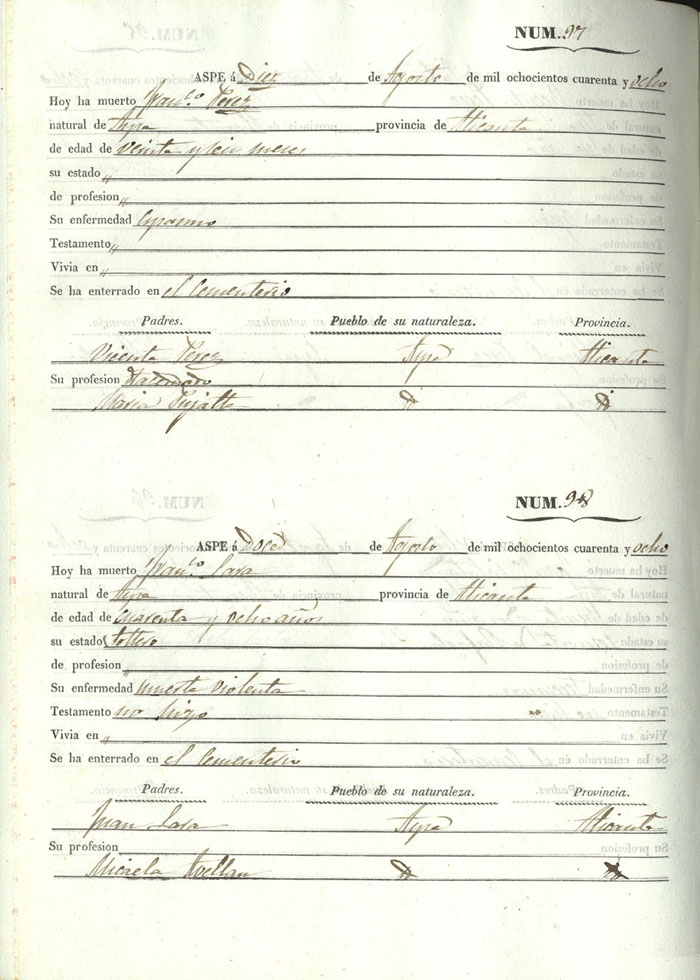 NUM. 97
ASPE á Diez de Agosto de mil ochocientos cuarenta y ocho
Hoy ha muerto Fran.co Perez
natural de Aspe provincia de Alicante
de edad de veinte y seis meses
su estado „
de profesion „
Su enfermedad
Testamento „
Vivia en „
Se ha enterrado en el Cementerio
Padres. Pueblo de su naturaleza. Provincia.
Vicente Perez Aspe Alicante
Su profesion
Maria Pujalte
NUM. 98
ASPE á Doce de Agosto de mil ochocientos cuarenta y ocho
Hoy ha muerto Fran.co Lara
natural de Aspe provincia de Alicante
de edad de cuarenta y ocho años
su estado soltero
de profesion „
Su enfermedad muerte violenta
Testamento no hizo
Vivia en „
Se ha enterrado en el Cementerio
Padres. Pueblo de su naturaleza. Provincia.
Juan Lara Aspe Alicante
Su profesion
Micaela Avellan